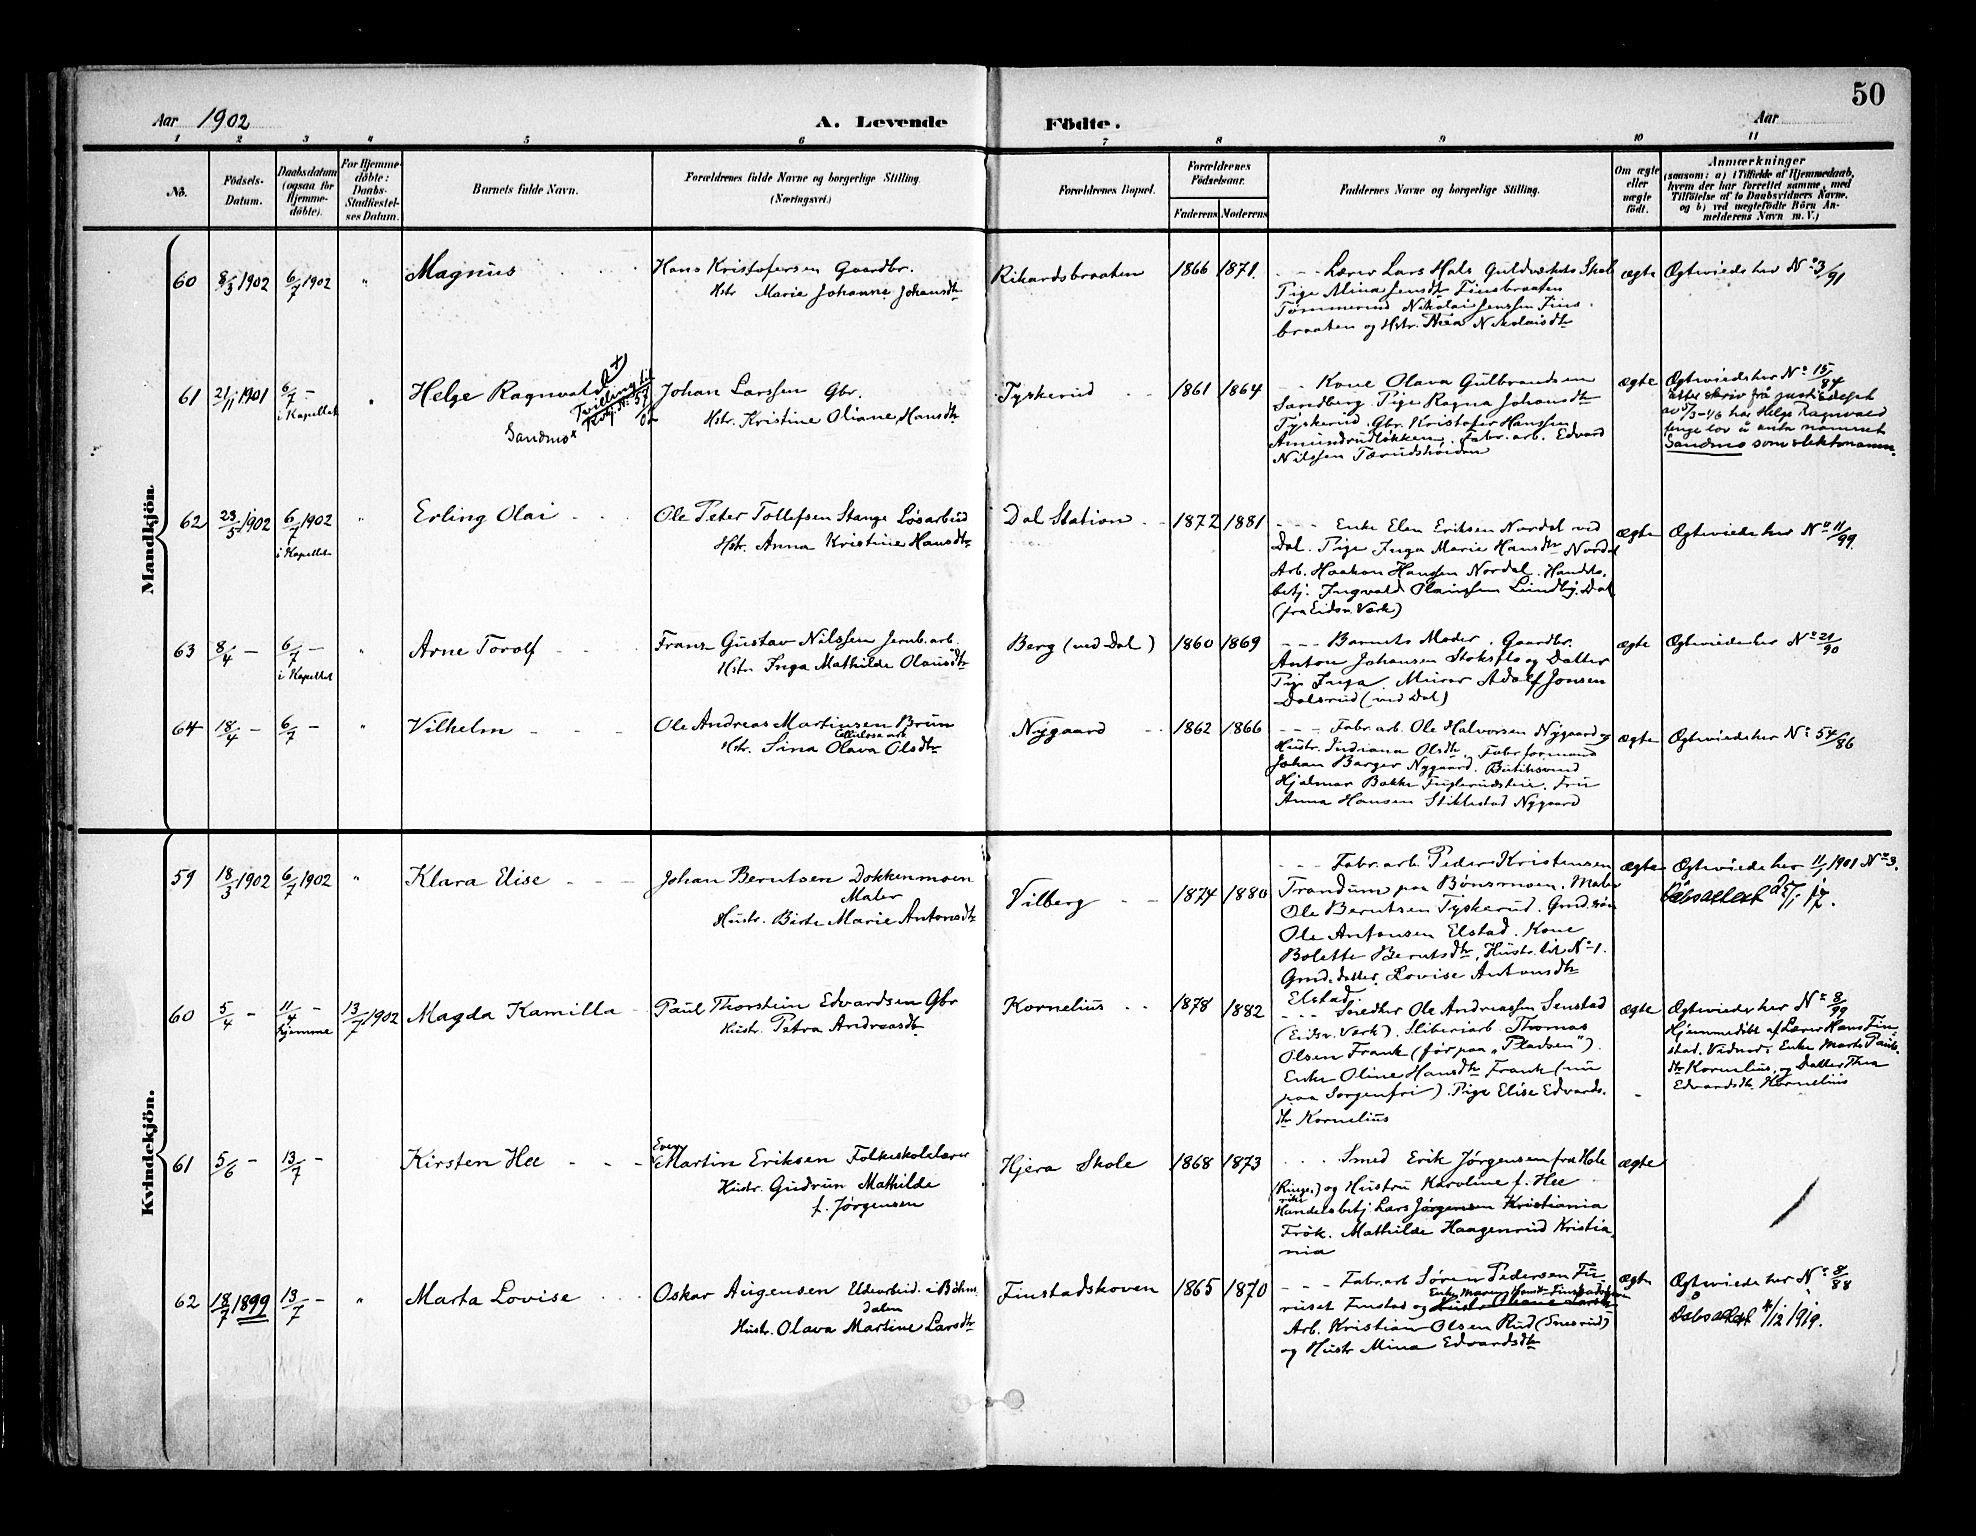 50
Aar 1902
A. Levende Födte.
Aar
1 2 3 4 5 6 7 8 9 10 11
No.
Födsels-Datum.
Daabsdatum (ogsaa for Hjemmedöbte).
For Hjemmedöbte: Daabs-Stadfæstelses Datum.
Barnets fulde Navn.
Forældrenes fulde Navne og borgerlige Stilling (Næringsvei.)
Forældrenes Bopæl.
Forældrenes Födselsaar.
Faderens Moderens
Faddernes Navne og borgerlige Stilling.
Om ægte eller uægte födt.
Anmærkninger
(saasom: a) i Tilfælde af Hjemmedaab,
hvem der har forrettet samme, med
Tilföielse af to Daabsvidners Navne.
og b) ved uægtefödte Börn An-
melderens Navn m. V.)
Mandkjön.
60 8/3 1902 6/7 1902 " Magnus
Hans Kristofersen Gaardbr.
Hstr Marie Johanne Johansdtr
Rikardsbraaten 1866 1871
Lærer Lars Hals Guldværkets Skole
Pige Mina Jensdtr Finsbraaten
Tømmermd Nikolai Jenssen Fins-
braaten og Hstr. Thea Nikolaisdtr
ægte Ægteviede her No 3/91
61 21/11 1901 6/7 –
i Kapellet
" Helge Ragnvald x)
Tvilling til
Sandmo x
Johan Larssen Gbr.
Hstr. Kristine Oliane Hansdtr
Tyskerud 1861 1864
Kone Olava Gulbrandsen
Sandberg. Pige Ragna Johansdtr
Tyskerud. Gbr. Kristofer Hanssen
Amundrudløkken. Fabr. arb. Edvard
Nilssen Tærudshøiden
ægte Ægteviede her No 15/84
etter skriv frå justisdept
av 5/3-16 har Helge Ragnvald
fenge lov å anta namnet
Sandmo som slektsnamn.
62 23/5 1902 6/7 1902
i Kapellet
" Erling Olai
Ole Peter Tollefsen Stange Løsarbeid
Hstr. Anna Kristine Hansdtr
Dal Station 1872 1881
Enke Elen Eriksen Nordal ved
Dal. Pige Inga Marie Hansdtr Nordal
Arb. Haakon Hansen Nordal. Handels-
betj. Ingvald Olaussen Lundby, Dal
(fra Eidsv. Værk)
ægte Ægteviede her No 11/99.
63 8/4 – 6/7 –
i Kapellet
" Arne Torolf
Franz Gustav Nilssen Jernb. arb.
Hstr. Inga Mathilde Olausdtr
Berg (ved Dal) 1860 1869
Barnets Moder. Gaardbr.
Anton Johansen Stoksflo og Datter
Pige Inga, Murer Adolf Jonsen
Dalsrud (ved Dal)
ægte Ægteviede her No 21/90
64 18/4 – 6/7 – " Vilhelm
Ole Andreas Martinsen Brun
Cellulosearb
Hstr. Sina Olava Olsdtr
Nygaard 1862 1866
Fabr. arb. Ole Halvorsen Nygaard og
Hustr. Indiana Olsdtr, Fabr formand
Johan Borger Nygaard. Butiksmd
Hjalmar Bakke Fuglerudsteie. Fru
Anna Hansen Stiklestad Nygaard
ægte Ægteviede her No 54/86
Kvindekjön.
59 18/3 1902 6/7 1902 " Klara Elise
Johan Berntsen Dokkenmoen
Maler
Hustr. Birte Marie Antonsdtr
Vilberg 1874 1880
Fabr. arb. Peder Kristensen
Trandum paa Bønsmoen. Maler
Ole Berntsen Tyskerud. Gmd. søn
Ole Antonsen Elstad. Kone
Bolette Berntsdtr, Hustr. til No 1.
Gmd. datter Lovise Antonsdtr
Elstad.
ægte Ægteviede her 11/1 1901 No 3.
Dåbsattest
60 5/4 – 11/4 –
hjemme
13/7 1902 Magda Kamilla
Paul Thorstein Edvardsen Gbr
Hustr. Petra Andreasdtr
Kornelius 1878 1882
Snedker Ole Andreassen Senstad
(Eidsv. Værk). Sliberiarb. Thomas
Olsen Frank (før paa "Pladsen").
Enke Oline Hansdtr Frank (nu
paa Sorgenfri). Pige Elise Edvards-
dtr Kornelius
ægte Ægteviede her No 8/99
Hjemmedøbt af Lærer Hans Fin-
stad. Vidner: Enke Marte Pauls-
dtr Kornelius, og Datter Thea
Edvardsdtr Kornelius
61 5/6 – 13/7 – Kirsten Hee
Even
Martin Eriksen Folkeskolelærer
Hustr. Gudrun Mathilde
f. Jørgensen
Hjera Skole 1868 1873
Smed Erik Jørgensen fra Hole
(Ringe-
rike) og Hustru Karoline f. Hee
Handelsbetj. Lars Jørgensen Kristiania
Frøk. Mathilde Haagenrud Kristia-
nia
ægte
62 18/7 1899 13/7 – " Marta Lovise
Oskar Augensen Udearbeid. i Bøhns-
dalen
Hustr. Olava Martine Larsdtr
Finstadskoven 1865 1870
Fabr. arb Søren Pedersen Fu-
ruset Finstad og
Arb. Kristian Olsen Rud (Snesrud)
og Hustr Mina Edvardsdtr
ægte Ægteviede her No 8/88
Dåbsattest 4/12 1919.